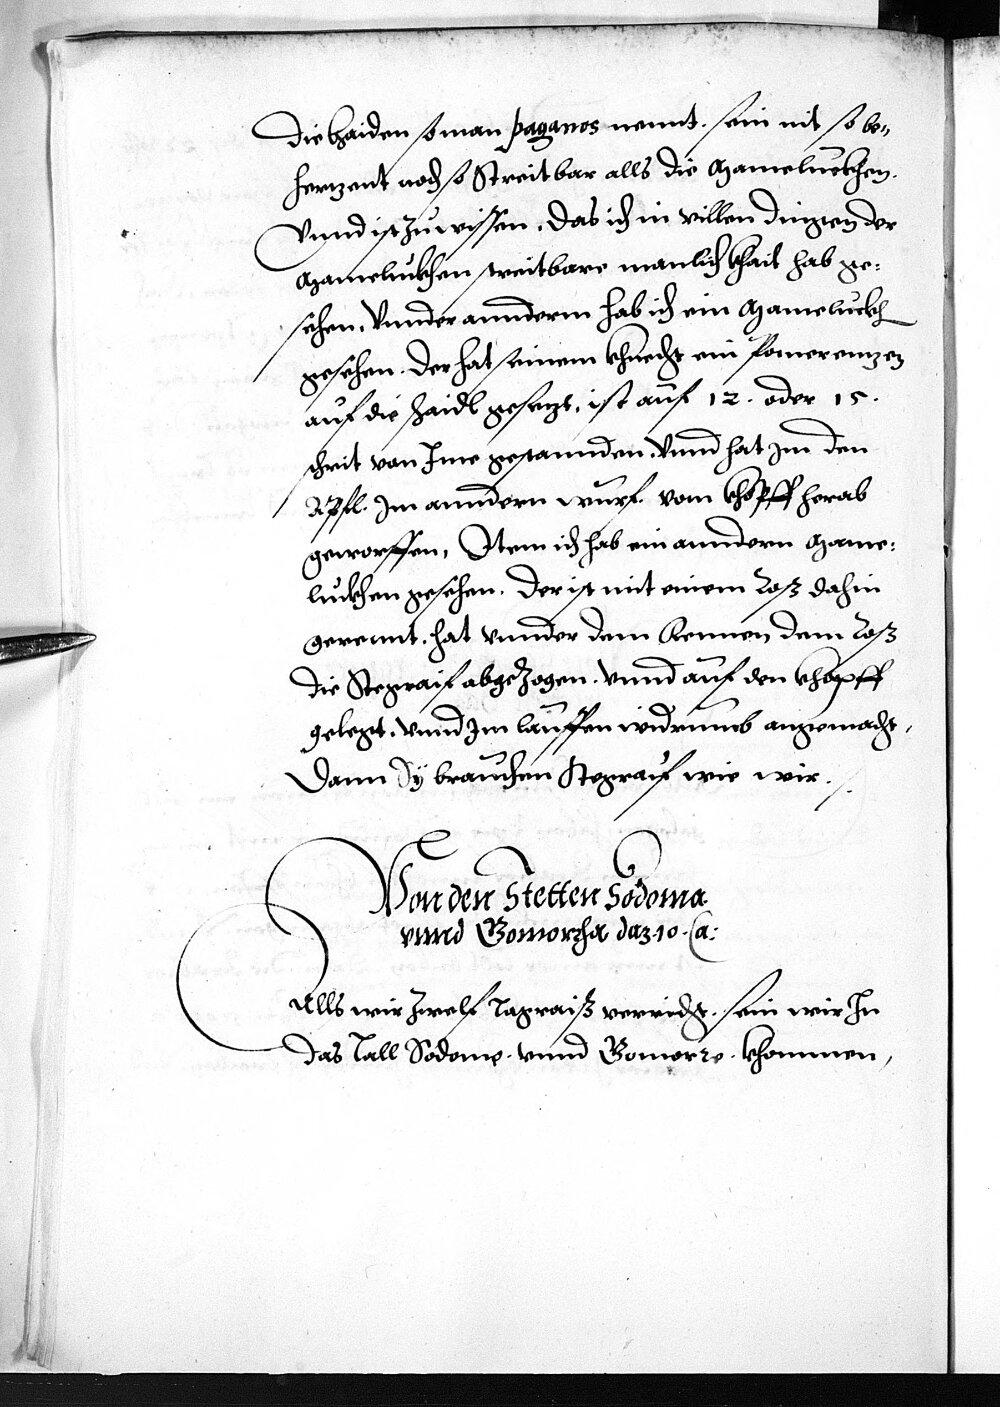 Die haiden so man paganos nennt. sein nit so be„
hertzent noch so Streitbar alls die Mameluckhen.
Vnnd ist zu wissen, Das ich in villen dingen der
Mameluckhen streitbare manlichkhait hab ge:
sehen, Vnnder anndern hab ich ein Mameluckh
gesehen. Der hat seinem khnecht ein Pomerentzen
auf die haidl gesetzt, ist auf 12. oder 15.
schrit von Ime gestannden, Vnnd hat Im den
Apfl. Im anndern wurf. vom khopff herab
geworffen, Item ich hab ein anndern Mame:
luckhen gesehen. Der ist mit einem Roß dahin
gerennt, hat vnnder dem Rennen dem Roß
die Stegraif abgezogen. vnnd auf den khopff
gelegt, vnnd Im lauffen widrumb angemacht,
Dann Sy brauchen Stegraif wie wir.
Von den Stetten Sodoma
vnnd Gomorrha das 10. Ca:
Alls wir zwelf Tagraiß verricht. sein wir In
das Tall Sodome. vnnd Gomorre. khommen,